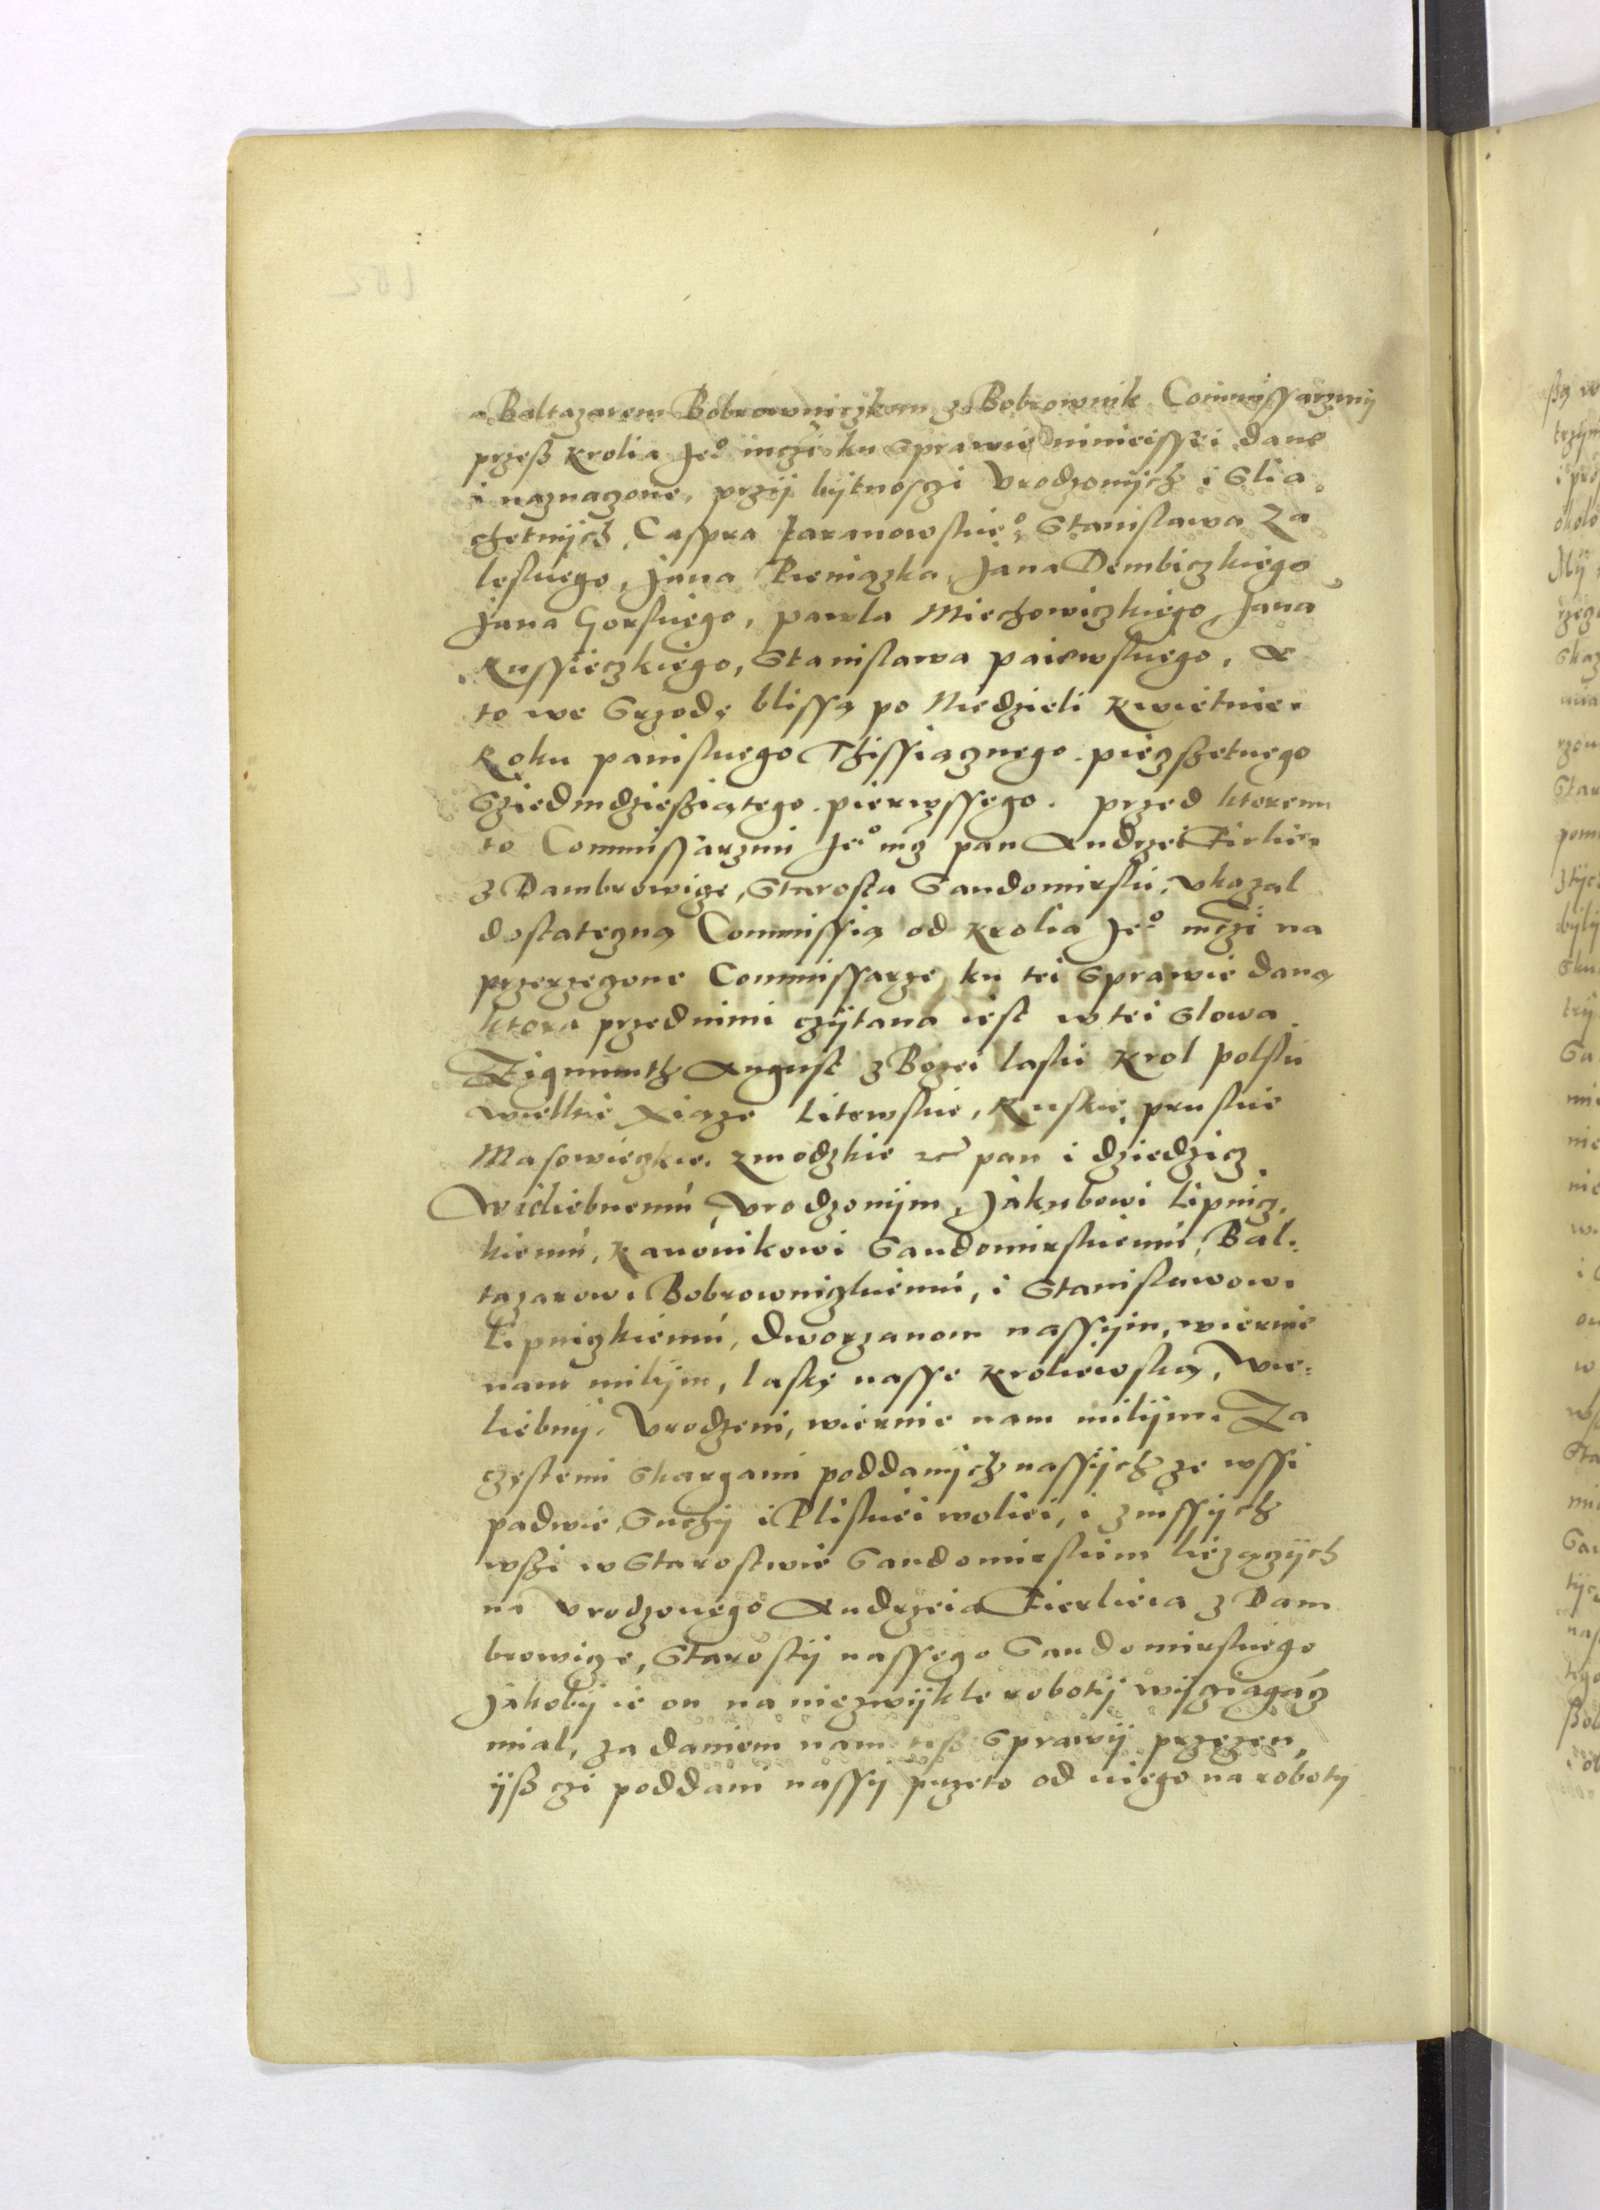 a Baltazarem Bobrowniczkem z Bobrownik Commissarzmij
przeß Krolia Je° mczi ku sprawie ninieissei dane
i naznaczone, przij bijtnosczi Vrodzonijch i Slia
chetnijch, Caspra Jaranowskie°, Stanislawa Za
leskiego, Jana Pieniązka, Jana Dembiczkiego
Jana Gorskiego, Pawla Miechowiczkiego, Jana
Russieczkiego, Stanislawa Paiewskiego, a
to we Srzodę blissą po Niedzieli Kwietniei
Roku paniskiego Thissiącznego pięczßetnego
Sziedmdzießiątego pierwssego. przed ktoremi
to Commissarzmi Je° mcz pan Andrzei Firliei
z Dambrowice, Starosta Sandomirski, vkazal
dostateczną Commissią od Krolia Je° mczi na
przerzeczone Commissarze, ku tei sprawie daną
ktora przednimi czijtana iest w tei slowa
Zigmunth August z Bozei laski Krol polski
wielkie xiąze Litewskie, Ruskie, pruskie
Masowieczkie, zmodzkie etc pan i dziedzicz
Wieliebnemu, Vrodzonijm, Jakubowi Lipnicz,
kiemu, Kanonikowi Sandomirskiemu, Bal,
tazarowi Bobrowniczkiemu, i Stanislawowi
Lipniczkiemu, dworzanom nassijm, wiernie
nam milijm, laskę nasse Kroliewską, Wie,
liebnij, Vrodzeni, wiernie nam milijmi Za
częstemi skargami poddanijch nassijch ze wssi
padwie, Suchij i Pliskiei woliei, i z inssijch
wßi w Starostwie Sandomirskim liezączijch
na vrodzonego Andrzeia Fierlieia z Dam
browice, Starostij nassego Sandomirskiego
Jakobij ie on na niezwijkle robotij wijcziągacz
mial, za daniem nam teß sprawij przezen,
ijß czi poddani nassij przeto od niego na robotij